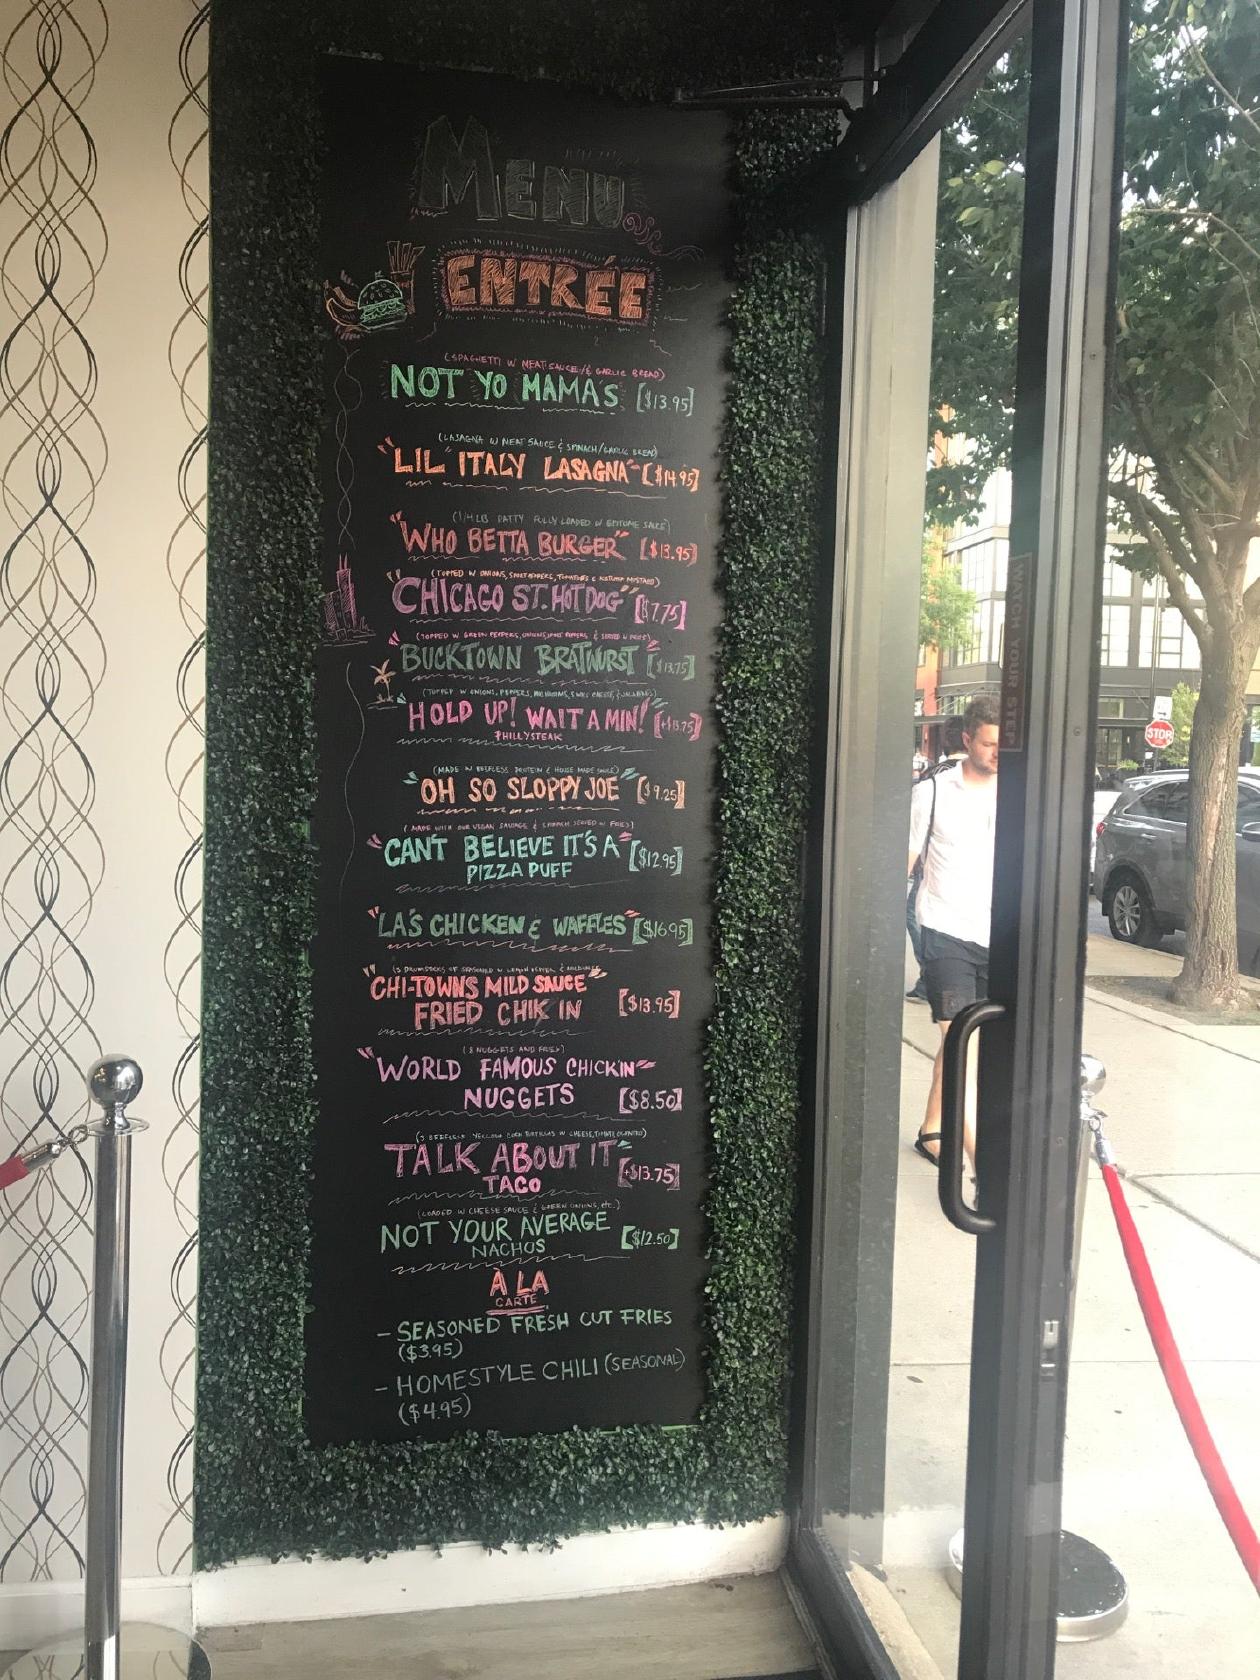 MENU
ENTRÉE
(SPAGHETTI W MEAT SAUCE/& GARLIC BREAD)
NOT YO MAMA'S [$13.95]
(LASAGNA W MEAT SAUCE & SPINACH/GARLIC BREAD)
"LIL" ITALY LASAGNA" [$14.95]
(1/4 LB PATTY FULLY LOADED W EPITOME SAUCE)
"WHO BETTA BURGER" [$13.95]
(TOPPED W ONIONS, SPORT PEPPERS, TOMATOES & KETCHUP MUSTARD)
"CHICAGO ST. HOT DOG" [$7.75]
(TOPPED W GREEN PEPPERS, ONIONS, SPORT PEPPERS & SERVED W FRIES)
"BUCKTOWN BRATWURST" [$13.75]
(TOPPED W ONIONS, PEPPERS, MUSHROOMS, SWISS CHEESE, & JALAPENOS)
"HOLD UP! WAIT A MIN!" [$13.75]
PHILLYSTEAK
(MADE W BEEFLESS PROTEIN & HOUSE MADE SAUCE)
"OH SO SLOPPY JOE" [$9.25]
(MADE WITH OUR VEGAN SAUSAGE & SPINACH SERVED W FRIES)
"CAN'T BELIEVE IT'S A" [$12.95]
PIZZA PUFF
"LA'S CHICKEN & WAFFLES" [$16.95]
(3 DRUMSTICKS OF SEASONED W LEMON PEPPER & MILD SAUCE
"CHI-TOWNS MILD SAUCE"
FRIED CHIK IN [$13.95]
(8 NUGGETS AND FRIES)
"WORLD FAMOUS CHICK'N"
NUGGETS [$8.50]
(3 BEEFLESS YELLOW CORN TORTILLAS W CHEESE, TOMATO CILANTRO)
TALK ABOUT IT" [$13.75]
TACO
(LOADED W CHEESE SAUCE & GREEN ONIONS, etc.)
NOT YOUR AVERAGE [$12.50]
NACHOS
À LA
CARTE
- SEASONED FRESH CUT FRIES
($3.95)
- HOMESTYLE CHILI (SEASONAL)
($4.95)
WATCH YOUR STEP
STOP